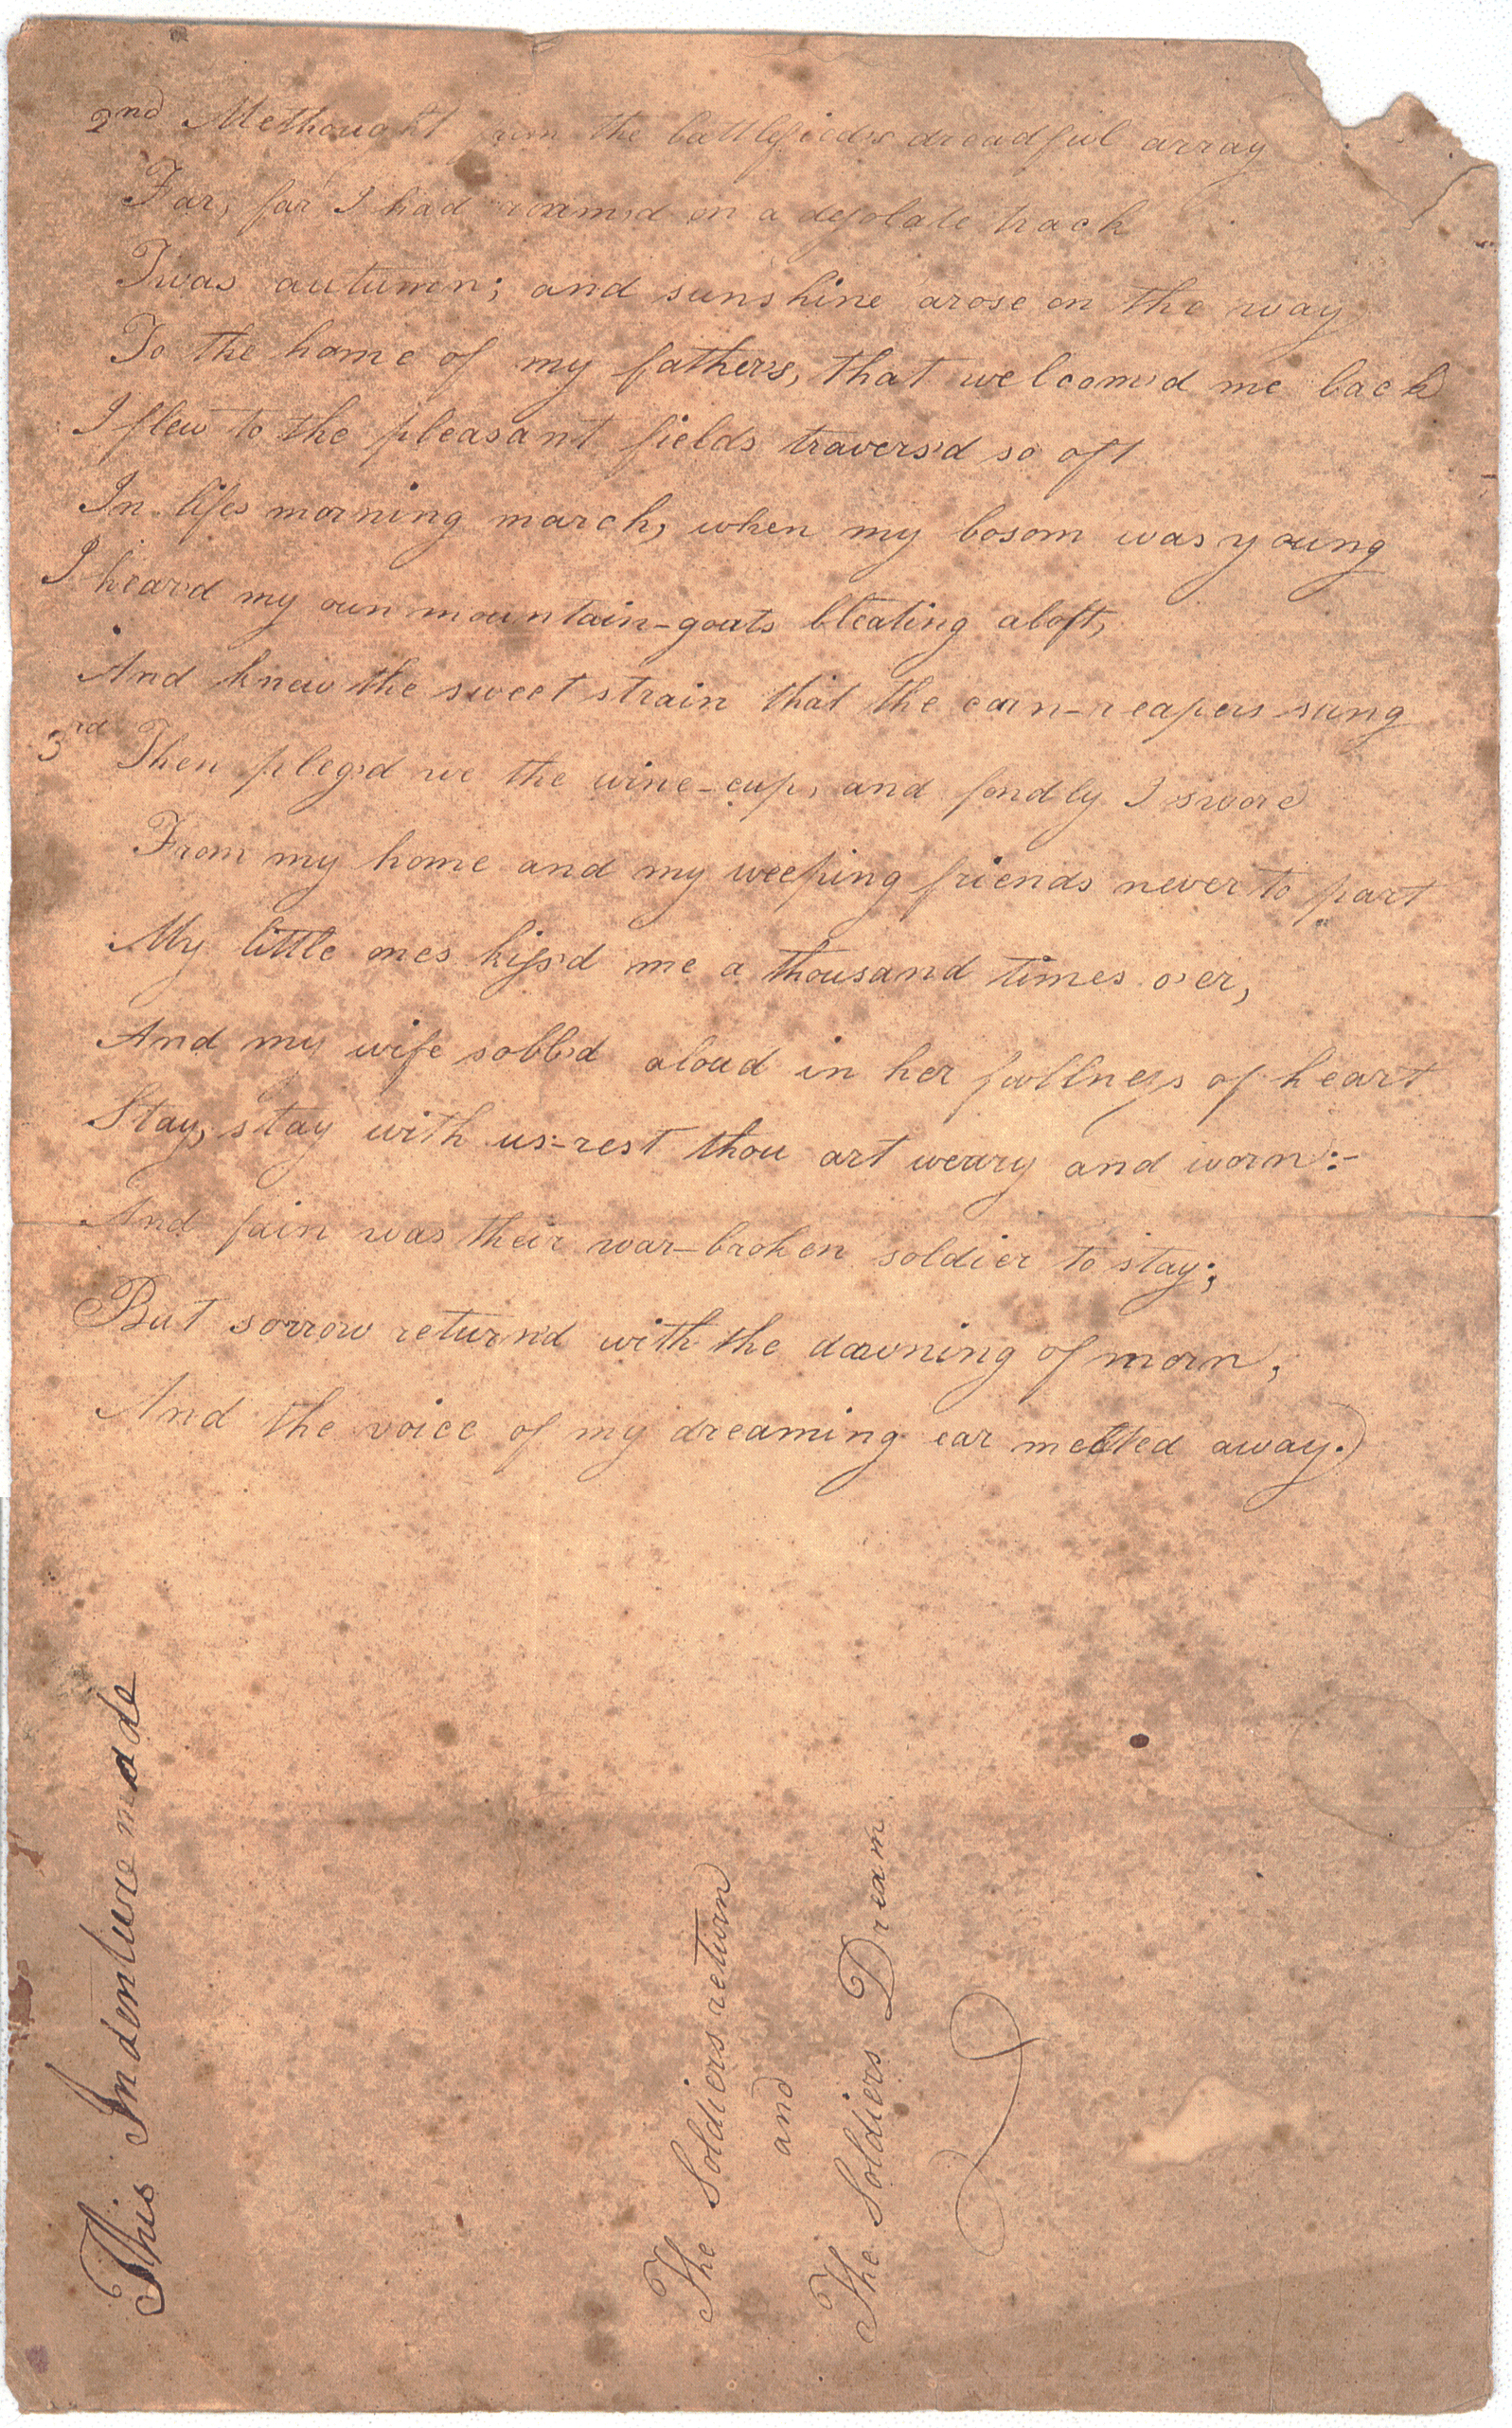 2nd Methought from the battlefield's dreadful array
Far, far I had roam'd on a desolate track
Twas autumn; and sunshine arose on the way
To the home of my father's, that welcom'd me back
I flew to the pleasant fields travers'd so oft
In lifes morning march, when my bosom was young
I heard my own mountain-goats bleating aloft,
And knew the sweet strain that the corn-reapers sung
3rd Then pleg'd we the wine-cup, and fondly I swore
From my home and my weeping friends never to part
My little ones kiss'd me a thousand times o'er,
And my wife sobb'd aloud in her fullness of heart
Stay, stay with us-rest thou art weary and worn:-
And fain was their war-broken soldier to stay;
But sorrow return'd with the dawning of morn,
And the voice of my dreaming ear melted away.
This Indenture made
The Soldiers return
and
The Soldiers Dream